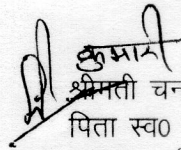 कुमारी
श्रीमती चन
पिता स्व0